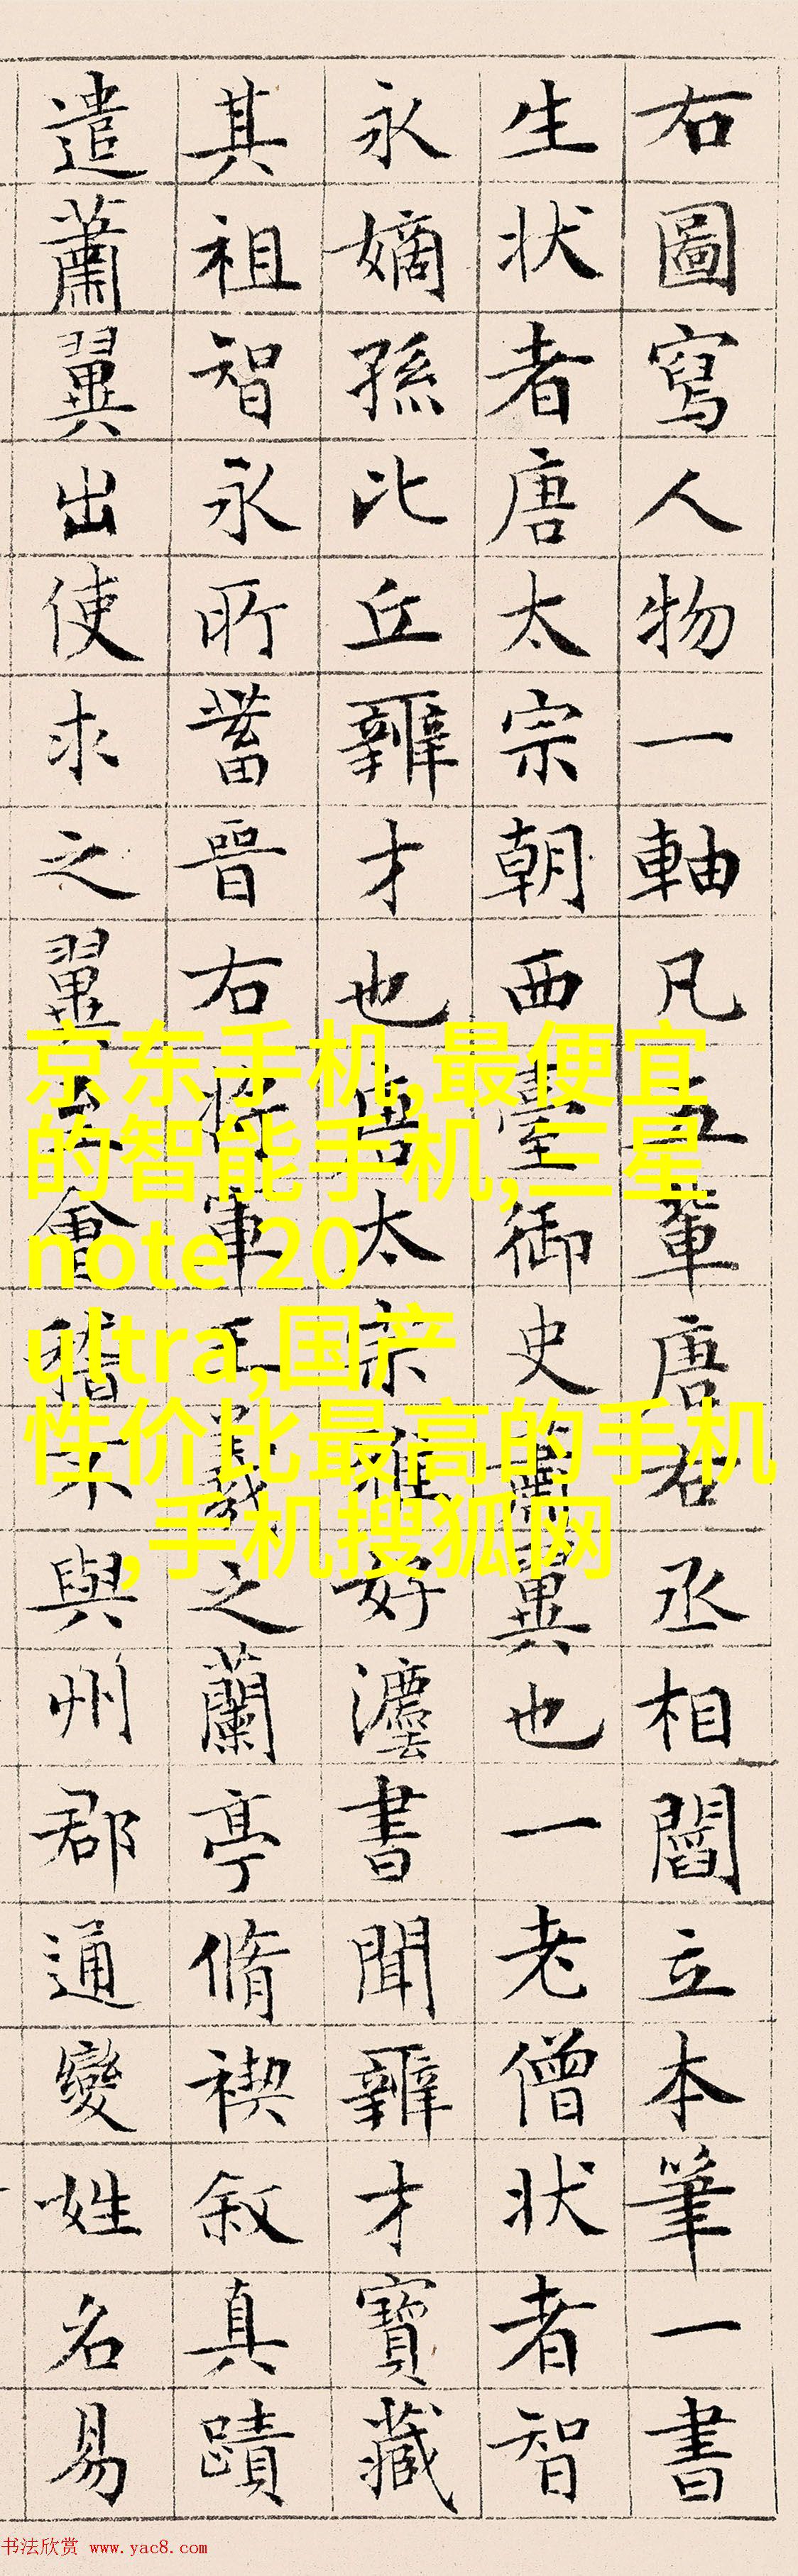 右圖寫人物一軸凡五輩唐右丞相閻立本筆一書
生状者唐太宗朝西臺御史蕭翼也一老僧状者智
永嫡孫比丘辨才也唐太宗雅好灋書聞辨才寶藏
其祖智永所蓄晉右將軍王羲之蘭亭脩禊叙真蹟
遣蕭翼出使求之翼至會稽不與州郡通變姓名易
京东手机,最便宜
的智能手机,三星
note 20
ultra,国产
性价比最高的手机
,手机搜狐网
书法欣赏 www.yac8.com